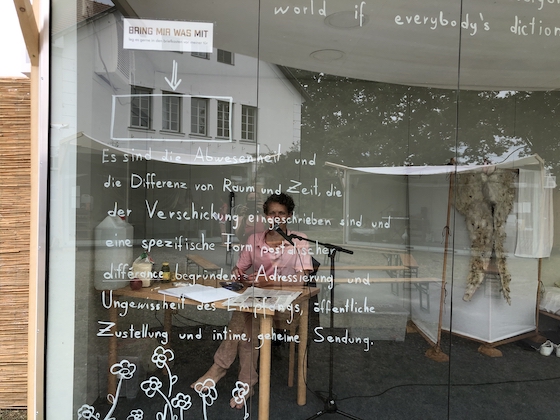 world if everybody's diction
BRING MIR WAS MIT
Es sind die Abwesenheit und
die Differenz von Raum und Zeit, die
der Verschickung eingeschrieben sind und
eine spezifische Form postalischer
différance begründen: Adressierung und
Ungewissheit des Empfangs, öffentliche
Zustellung und intime, geheime Sendung.